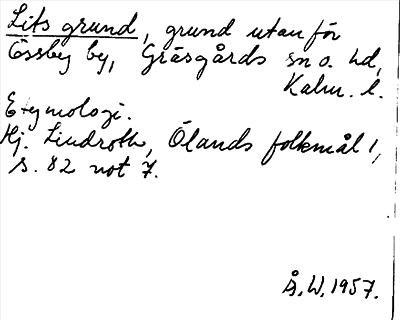 Lits grund, grund utanför
Össby by, Gräsgårds sn o. hd,
Kalm. l.
Etymologi.
Hj. Lindroth, Ölands folkmål 1,
s. 82 not 7.
Å. W. 1957.